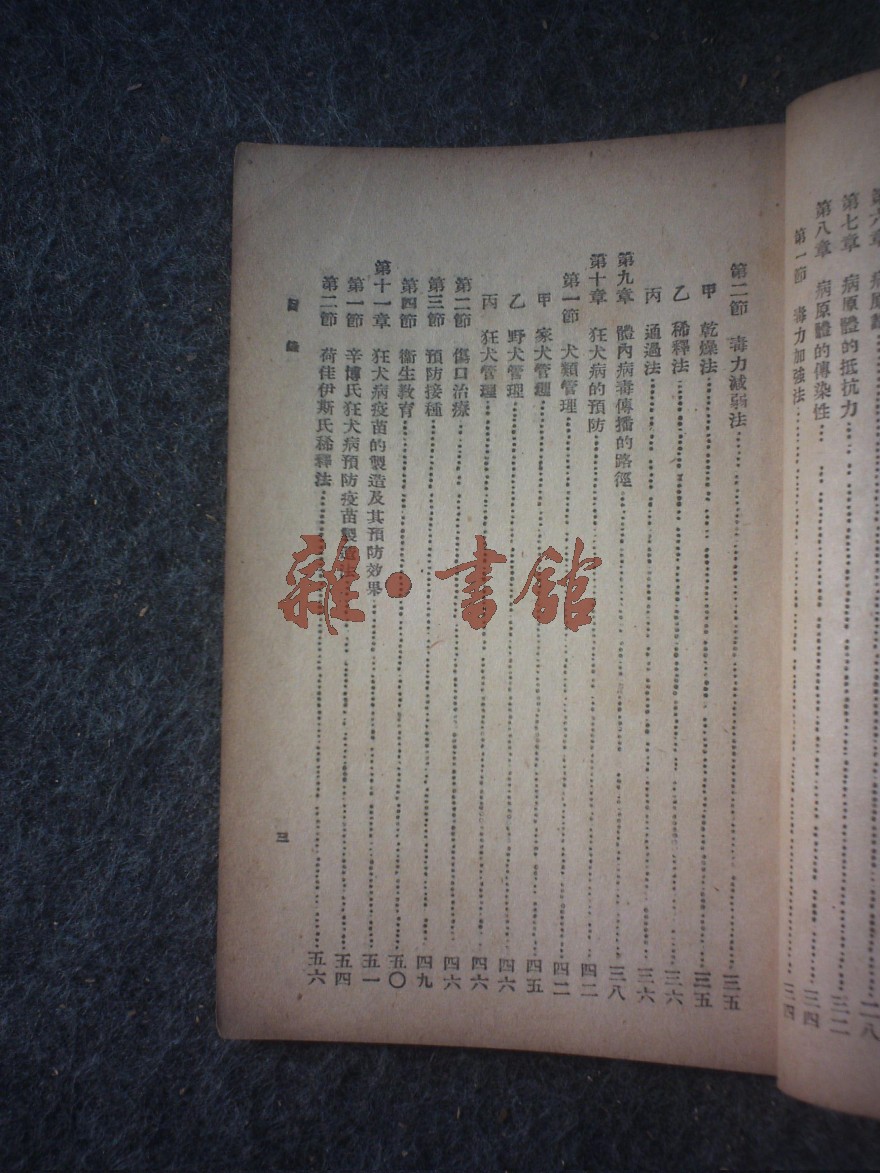 第七章　病原體的抵抗力……三二
第八章　病原體的傳染性……三四
第一節　毒力加強法……三四
第二節　毒力減弱法……三五
甲　乾燥法……三五
乙　稀釋法……三六
丙　通過法……三六
第九章　體內病毒傳播的路徑……三八
第十章　狂犬病的預防……四二
第一節　犬類管理……四二
甲　家犬管理……四五
乙　野犬管理……四六
丙　狂犬管理……四六
第二節　傷口治療……四六
第三節　預防接種……四九
第四節　衞生教育……五〇
第十一章　狂犬病疫苗的製造及其預防效果……五一
第一節　辛博氏狂犬病預防疫苗製造法……五四
第二節　荷佳伊斯氏稀釋法……五六
目錄
三
雜·書館